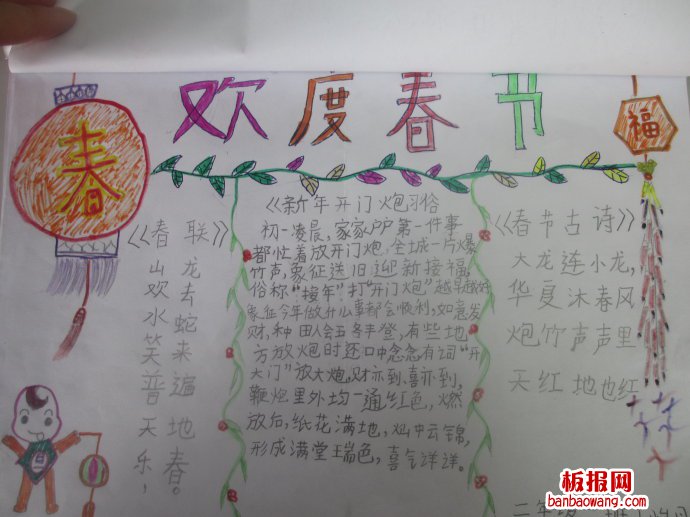 欢度春节
春
福
《春联》
山欢水笑普天乐，
龙去蛇来遍地春。
《新年开门炮习俗
初一凌晨，家家户户第一件事
都忙着放开门炮，全城一片爆
竹声，象征送旧迎新接福，
俗称"接年"打"开门炮"越早越好
象征今年做什么事都会顺利，如意发
财，种田人会五冬丰登，有些地
方放炮时还口中念念有词"开
大门"放大炮，财亦到、喜亦到，
鞭炮里外均一通红色，燃
放后，纸花满地，灿中云锦，
形成满堂瑞色，喜气洋洋。
《春节古诗》
大龙连小龙，
华夏沐春风
炮竹声声里
天红地也红
二年级
板报网
banbaowang.com